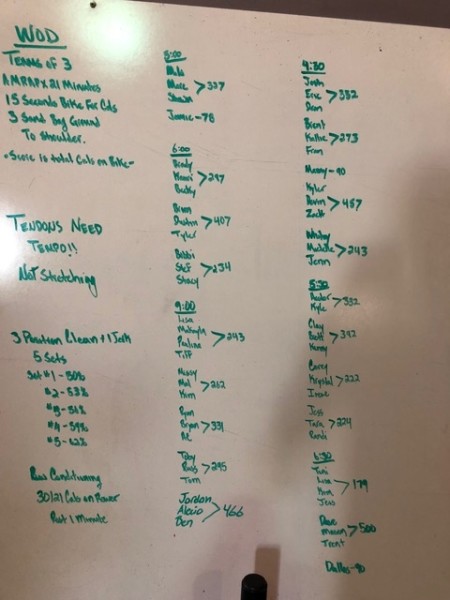 WOD
TEAMS OF 3
AMRAP X 21 Minutes
15 Seconds Bike For Cals
3 Sand Bag Ground
To Shoulder.
-Score is total Cals on Bike-
TENDONS NEED
TEMPO!!
Not Stretching
3 Position Clean + 1 Jerk
5 Sets
Set #1 - 50%
#2 - 53%
#3 - 56%
#4 - 59%
#5 - 62%
Conditioning
30/21 Cals on Rower
Rest 1 Minute
5:00
> 337
Jamie - 78
6:00
Brady
> 297
Becky
Brian
Dustin > 407
Tyler
Bobbi
Stef > 234
Stacy
9:00
Lisa
Makayla
Pauline > 243
Tiff
Nancy
Mal > 262
Kim
Ryan
Bryan > 331
Toby
> 295
Tom
Jordan
> 466
Ben
4:30
Josh
Eric > 332
Dean
Brent
Kathie > 273
Fran
Manny - 90
Kyler
> 457
Zach
Whitney
Michelle > 243
Jenn
5:30
> 332
Kyle
Clay
> 342
Kenny
Barry
Krystal > 222
Irene
Jess
Tara > 224
Randi
> 179
Jess
Dave
Mason > 500
Trent
Dallas - 90